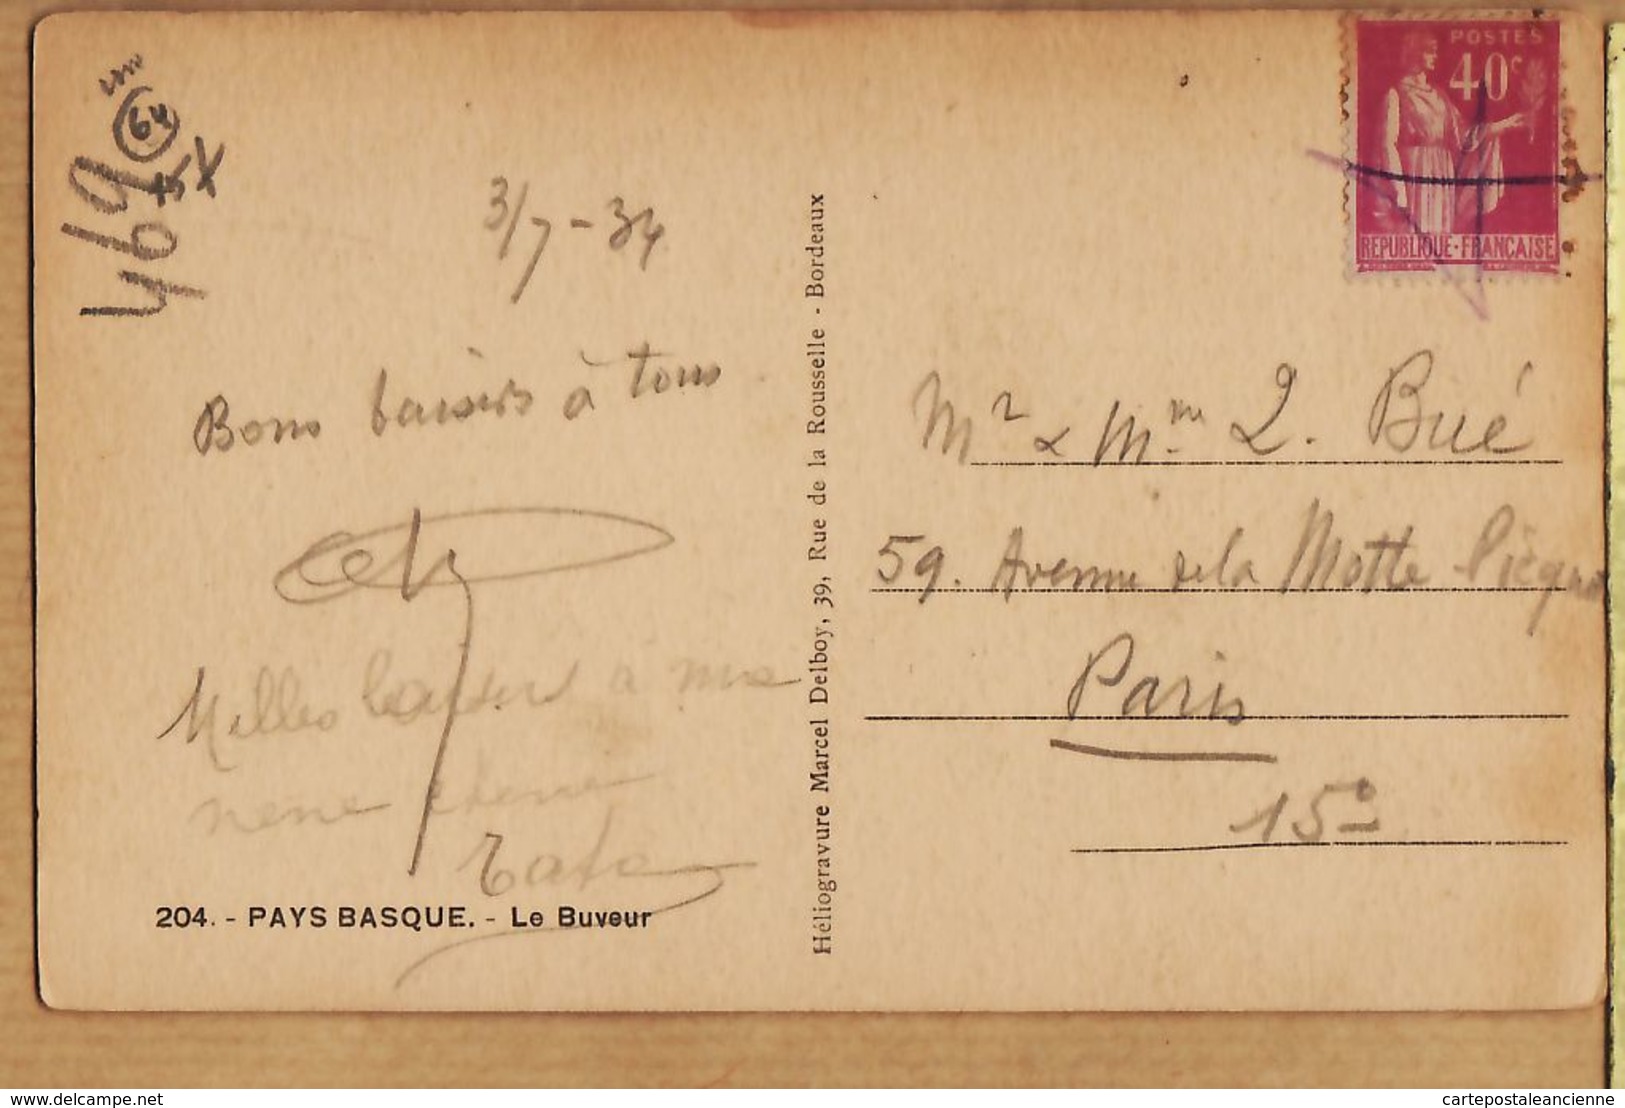 469
64
3/7-34
Bons baisers à tous
Milles baisers à ma
nene
Tata
204. - PAYS BASQUE. - Le Buveur
Héliogravure Marcel Delboy, 39, Rue de la Rousselle - Bordeaux
POSTES
40c
REPUBLIQUE-FRANÇAISE
Mr & Mme L. Bué
59. Avenue de la Motte Picquet
Paris
15e
www.delcampe.net
cartepostaleancienne